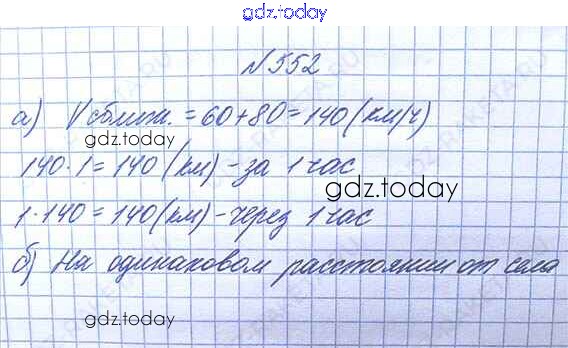 gdz.today
№552
а) Vсближ. = 60+80=140(км/ч)
gdz.today
140·1=140 (км) - за 1 час
gdz.today
1·140=140(км) - через 1 час
б) На одинаковом расстоянии от села
gdz.today